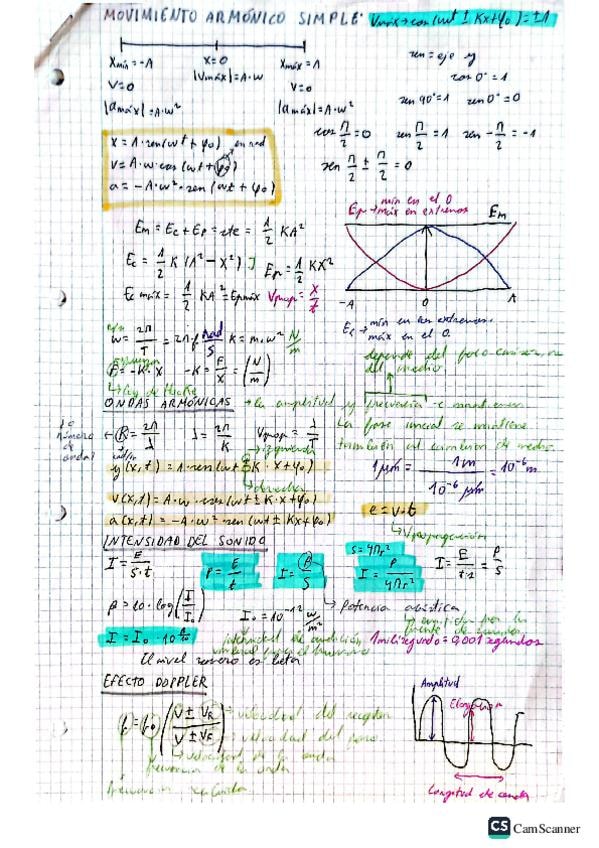 MOVIMIENTO ARMÓNICO SIMPLE: Vmáx → cos(ωt ± Kx + φ₀) = ±1
Xmín = -A X=0 Xmáx = A
V=0 |Vmáx| = A·ω V=0
|amáx| = A·ω² |amáx| = A·ω²
sen = eje y
cos 0° = 1
sen 90° = 1 sen 0° = 0
cos Π/2 = 0 sen Π/2 = 1 sen -Π/2 = -1
sen Π/2 ± Π/2 = 0
x = A·sen(ωt + φ₀) en rad
v = A·ω·cos(ωt + φ₀)
a = -A·ω²·sen(ωt + φ₀)
Em = Ec + Ep = cte = 1/2 KA²
Ec = 1/2 K (A² - X²) J Ep = 1/2 KX²
Ec máx = 1/2 KA² = Epmáx Vprop = X/t
Ep → mín en el 0
máx en extremos Em
-A 0 A
Ec → mín en los extremos.
máx en el 0.
ω = 2Π/T = 2Π·f rad/s K = m·ω² N/m
F = -K·X -K = F/X = (N/m)
Ley de Hooke
depende del foco emisor
del medio.
ONDAS ARMÓNICAS → La amplitud y frecuencia se mantienen
La fase inicial se mantiene
también al cambiar de medio.
nº número de onda
K = 2Π/λ λ = 2Π/K Vprop = λ/T
rad/m
izquierda
y(x,t) = A·sen(ωt ± K·X + φ₀)
derecha
v(x,t) = A·ω·cos(ωt ± K·X + φ₀)
a(x,t) = -A·ω²·sen(ωt ± Kx + φ₀)
1μm = 1m/10⁻⁶ μm = 10⁻⁶ m
e = v·t
Vpropagación
INTENSIDAD DEL SONIDO
I = E/S·t P = E/t I = P/S S = 4Πr² I = P/4Πr² I = E/t·s = P/S
Potencia acústica
β = 10·log(I/I₀) I₀ = 10⁻¹² W/m²
I = I₀·10^β/10
intensidad de
1milisegundo = 0,001 segundos
El nivel sonoro es beta
EFECTO DOPPLER
f = f₀ (V ± VR / V ± VF) → velocidad del receptor
velocidad del foco.
velocidad de la onda
frecuencia de la onda
frecuencia
Amplitud
Elongación
Longitud de onda
CS CamScanner